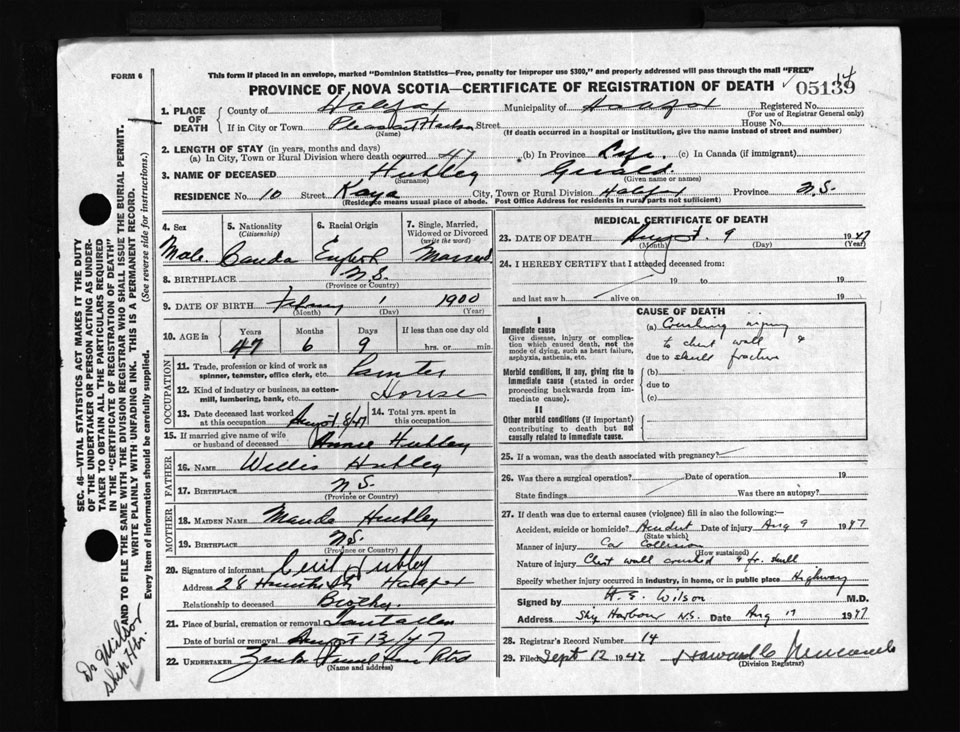 FORM 6
This form if placed in an envelope, marked "Dominion Statistics—Free, penalty for improper use $300," and properly addressed will pass through the mail "FREE"
PROVINCE OF NOVA SCOTIA—CERTIFICATE OF REGISTRATION OF DEATH 05139 14
1. PLACE OF DEATH
County of Halifax Municipality of Halifax Registered No.
(For use of Registrar General only)
If in City or Town Pleasant Harbor Street House No.
(Name) (If death occurred in a hospital or institution, give the name instead of street and number)
2. LENGTH OF STAY (in years, months and days)
(a) In City, Town or Rural Division where death occurred 47 (b) In Province Life (c) In Canada (if immigrant)
3. NAME OF DECEASED Hubley Gerald
(Surname) (Given name or names)
RESIDENCE No. 10 Street Kaye City, Town or Rural Division Halifax Province N.S.
(Residence means usual place of abode. Post Office Address for residents in rural parts not sufficient)
4. Sex Male
5. Nationality (Citizenship) Canda
6. Racial Origin English
7. Single, Married, Widowed or Divorced (write the word) Married
8. BIRTHPLACE N.S.
(Province or Country)
9. DATE OF BIRTH February 1 1900
(Month) (Day) (Year)
10. AGE in Years 47 Months 6 Days 9 If less than one day old hrs. or min.
OCCUPATION
11. Trade, profession or kind of work as spinner, teamster, office clerk, etc. Painter
12. Kind of industry or business, as cotton-mill, lumbering, bank, etc. House
13. Date deceased last worked at this occupation August 8/47
14. Total yrs. spent in this occupation
15. If married give name of wife or husband of deceased Annie Hubley
FATHER
16. NAME Willis Hubley
17. BIRTHPLACE N.S.
(Province or Country)
MOTHER
18. MAIDEN NAME Maude Hubley
19. BIRTHPLACE N.S.
(Province or Country)
20. Signature of informant Cecil Hubley
Address 28 Halifax
Relationship to deceased Brother
21. Place of burial, cremation or removal
Date of burial or removal August 13/47
22. UNDERTAKER
(Name and address)
MEDICAL CERTIFICATE OF DEATH
23. DATE OF DEATH August 9 1947
(Month) (Day) (Year)
24. I HEREBY CERTIFY that I attended deceased from:
19 to 19
and last saw h alive on 19
CAUSE OF DEATH
I
Immediate cause
Give disease, injury or complication which caused death, not the mode of dying, such as heart failure, asphyxia, asthenia, etc.
(a) Crushing injury
to chest wall &
due to skull fracture
Morbid conditions, if any, giving rise to immediate cause (stated in order proceeding backwards from immediate cause).
(b)
due to
(c)
II
Other morbid conditions (if important) contributing to death but not causally related to immediate cause.
25. If a woman, was the death associated with pregnancy?
26. Was there a surgical operation? Date of operation 19
State findings Was there an autopsy?
27. If death was due to external causes (violence) fill in also the following:
Accident, suicide or homicide? Accident Date of injury Aug 9 1947
(State which)
Manner of injury Car Collision
(How sustained)
Nature of injury Chest wall crushed & fr. skull
Specify whether injury occurred in industry, in home, or in public place Highway
Signed by H. E. Wilson M.D.
Ship Harbour N.S. Date Aug 17 1947
28. Registrar's Record Number 14
29. Filed Sept 12 1947 Howard
(Division Registrar)
SEC. 46—VITAL STATISTICS ACT MAKES IT THE DUTY
OF THE UNDERTAKER OR PERSON ACTING AS UNDER-
TAKER TO OBTAIN ALL THE PARTICULARS REQUIRED
IN THE "CERTIFICATE OF REGISTRATION OF DEATH"
AND TO FILE THE SAME WITH THE DIVISION REGISTRAR WHO SHALL ISSUE THE BURIAL PERMIT.
WRITE PLAINLY WITH UNFADING INK. THIS IS A PERMANENT RECORD.
Every item of information should be carefully supplied. (See reverse side for instructions.)
Dr Wilson
Ship Hr.